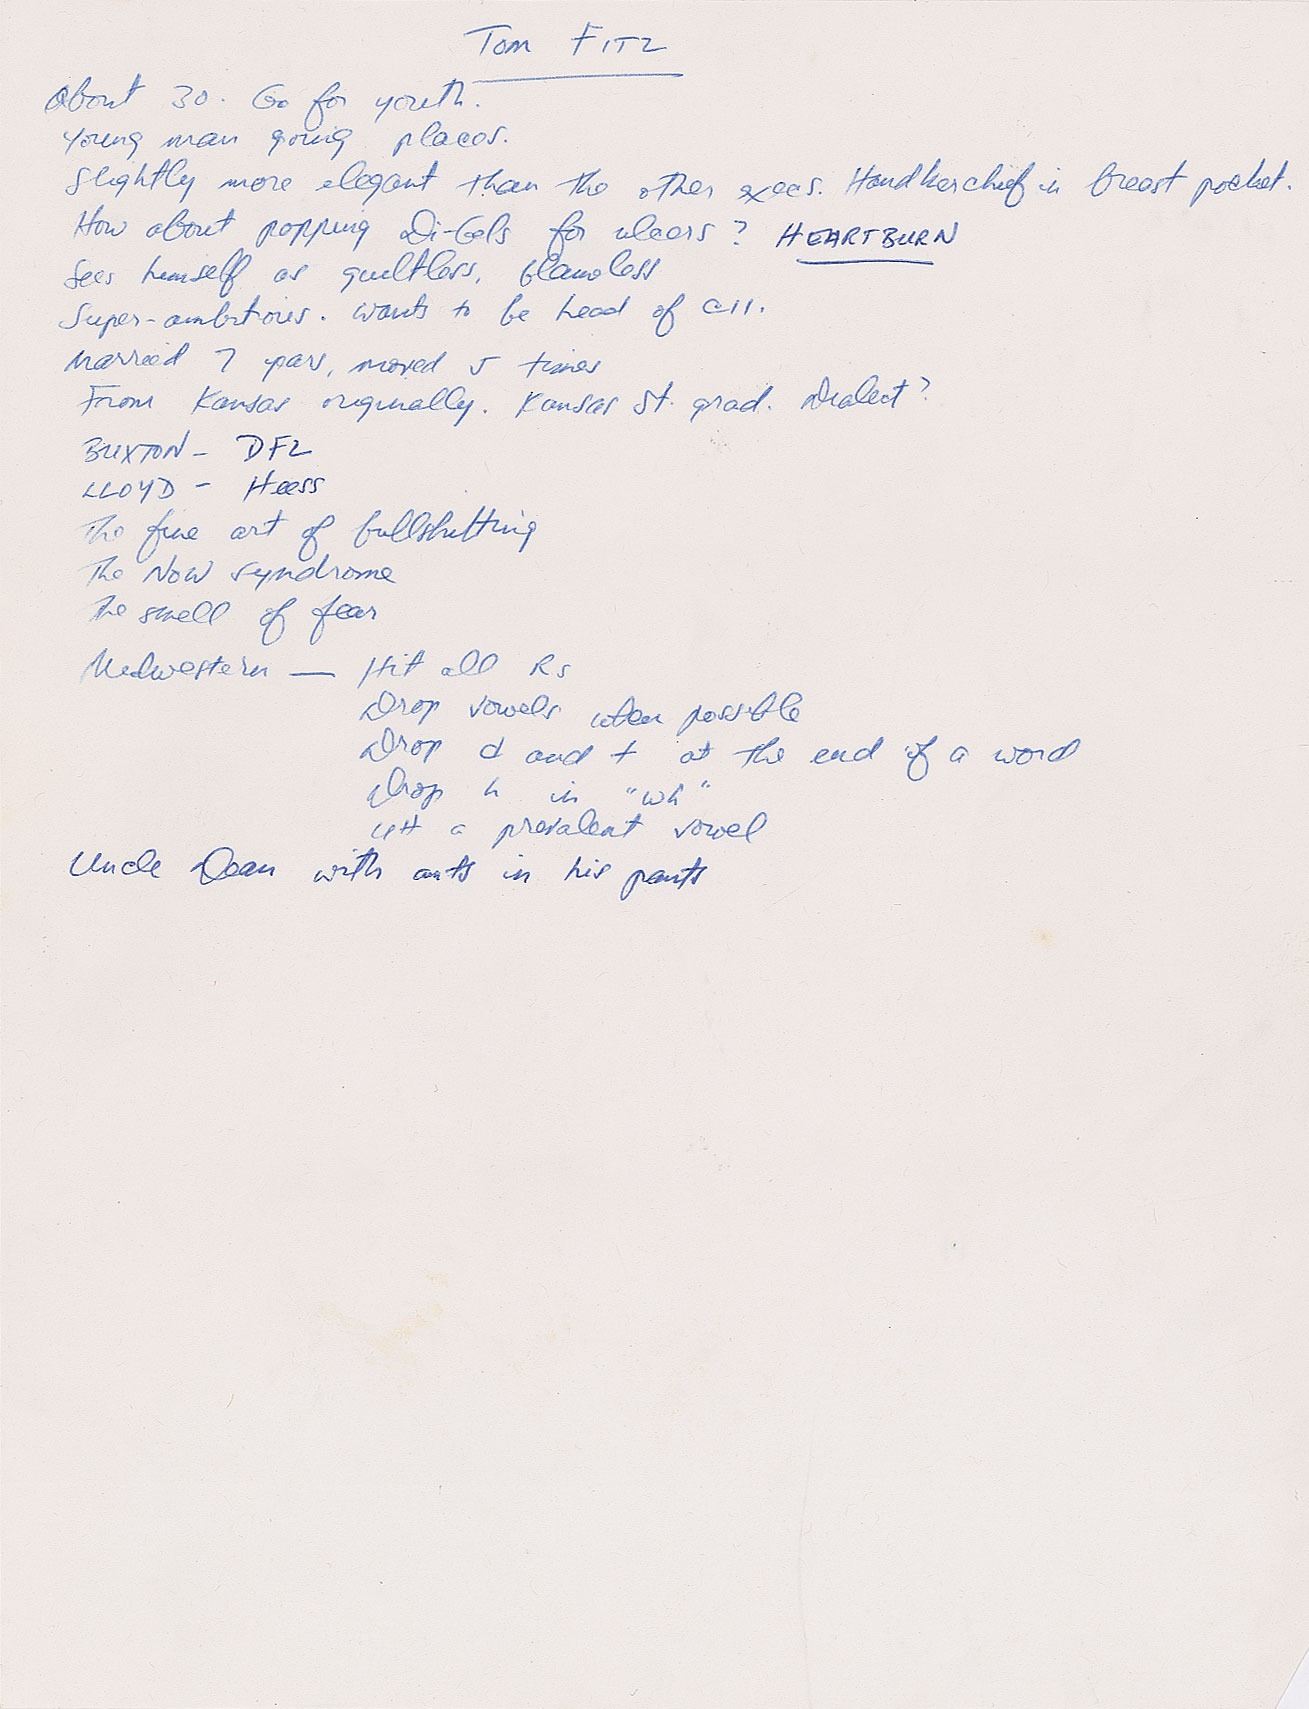 Tom Fitz
About 30. Go for youth.
Young man going places.
Slightly more elegant than the other execs. Handkerchief in breast pocket.
How about popping Di-Gels for ulcers? HEARTBURN
Sees himself as guiltless, blameless
Super-ambitious. Wants to be head of all.
Married 7 years, moved 5 times
From Kansas originally. Kansas St. grad. Dialect?
BUXTON - DFZ
LLOYD - Heess
The fine art of bullshitting
The Now syndrome
The smell of fear
Midwestern — Hit all Rs
Drop vowels when possible
Drop d and t at the end of a word
Drop h in "wh"
UH a prevalent vowel
Uncle Dean with ants in his pants